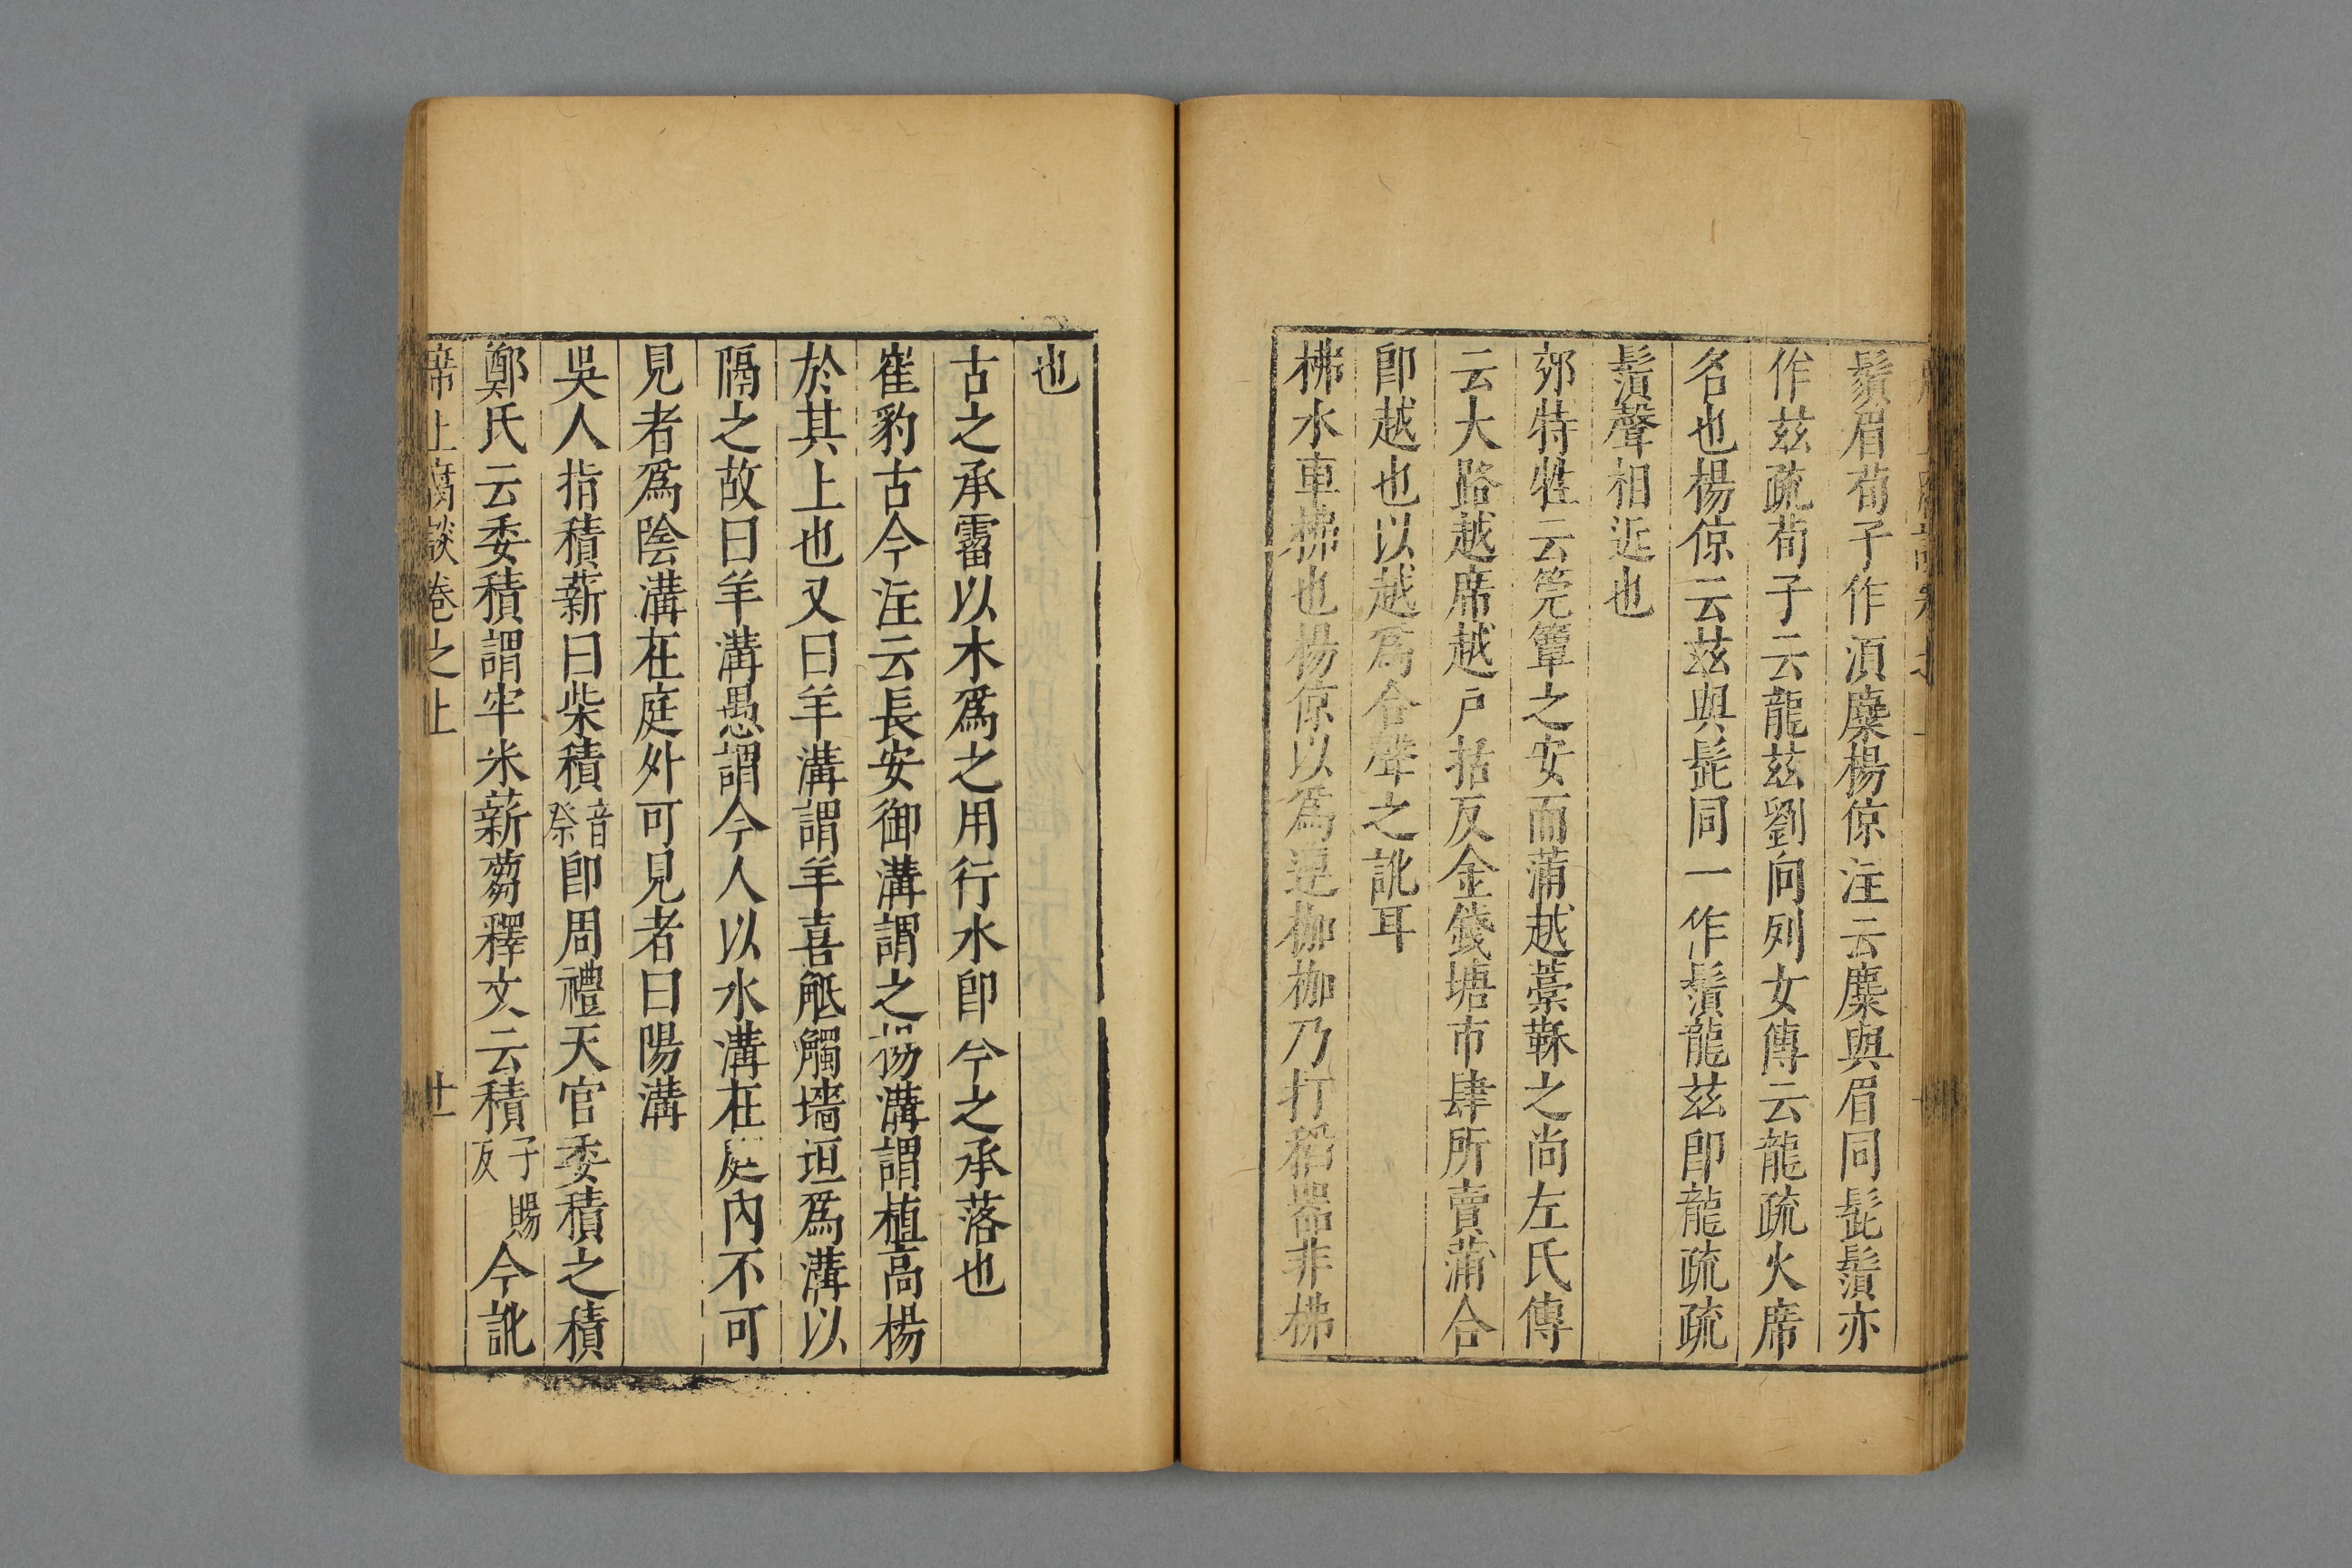 鬚眉荀子作湏麋楊倞注云麋與眉同髭鬚亦
作茲疏荀子云龍茲劉向列女傳云龍疏火席
名也楊倞云茲與髭同一作鬚龍茲卽龍疏疏
鬚聲相近也
郊特牲云筦簟之安而蒲越藁鞂之尚左氏傳
云大路越席越戶括反金錢塘市肆所賣蒲合
卽越也以越爲合聲之訛耳
柫水車柫也楊倞以爲連枷枷乃打稻器非柫
也
古之承霤以木爲之用行水卽今之承落也
崔豹古今注云長安御溝謂之楊溝謂植高楊
於其上也又曰羊溝謂羊喜觝觸墻垣爲溝以
隔之故曰羊溝愚謂今人以水溝在庭內不可
見者爲陰溝在庭外可見者曰陽溝
吳人指積薪曰柴積音祭卽周禮天官委積之積
鄭氏云委積謂牢米薪蒭釋文云積子賜反今訛
席上腐談卷之上 廿